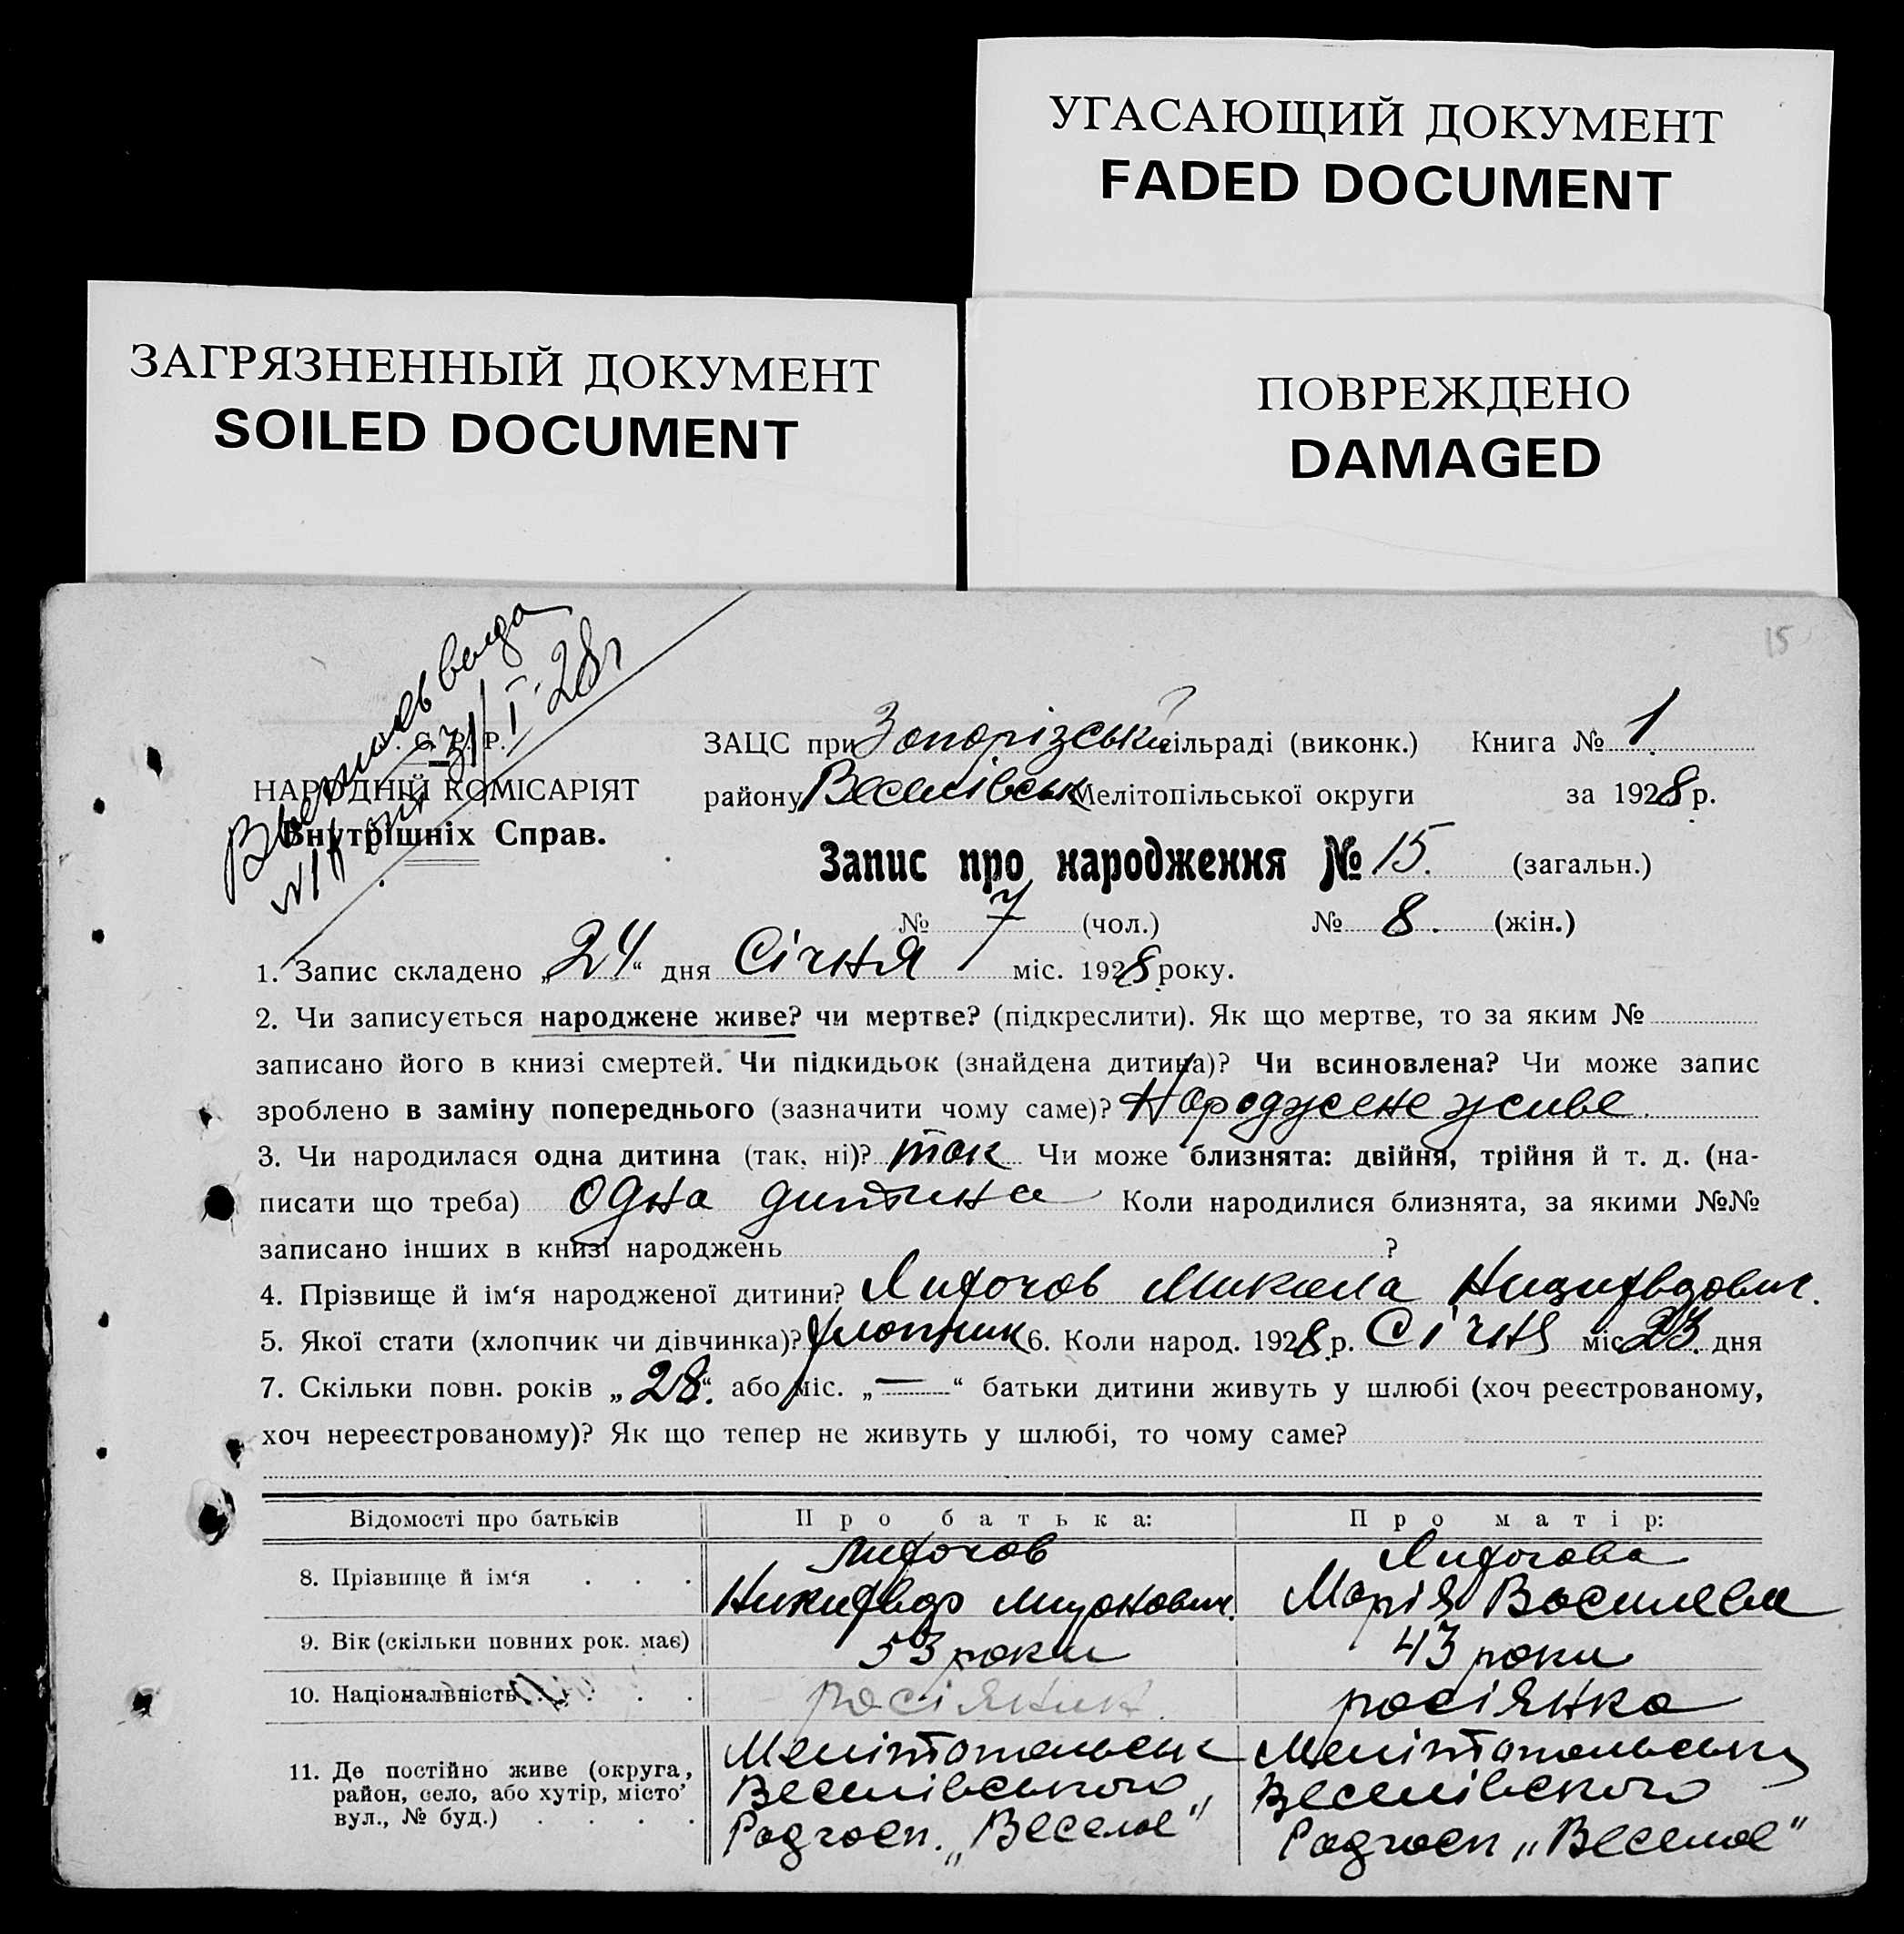 УГАСАЮЩИЙ ДОКУМЕНТ
FADED DOCUMENT
ЗАГРЯЗНЕННЫЙ ДОКУМЕНТ
SOILED DOCUMENT
ПОВРЕЖДЕНО
DAMAGED
15
31/I 28 г
С. Р. Р.
НАРОДНІЙ КОМІСАРІЯТ
Внутрішніх Справ.
ЗАЦС при Запорізській сільраді (виконк.) Книга № 1.
району Веселівськ Мелітопільської округи за 1928 р.
Запис про народження № 15. (загальн.)
№ 7 (чол.) № 8. (жін.)
1. Запис складено „24“ дня Січня міс. 1928 року.
2. Чи записується народжене живе? чи мертве? (підкреслити). Як що мертве, то за яким №
записано його в книзі смертей. Чи підкидьок (знайдена дитина)? Чи всиновлена? Чи може запис
зроблено в заміну попереднього (зазначити чому саме)? Народжене живе
3. Чи народилася одна дитина (так, ні)? так Чи може близнята: двійня, трійня й т. д. (на-
писати що треба) Одна дитина Коли народилися близнята, за якими №№
записано інших в книзі народжень ?
4. Прізвище й ім‘я народженої дитини? Микола
5. Якої стати (хлопчик чи дівчинка)? Хлопчик 6. Коли народ. 1928 р. Січня міс. 23. дня
7. Скільки повн. років „28“. або міс. „—“ батьки дитини живуть у шлюбі (хоч реєстрованому,
хоч нереєстрованому)? Як що тепер не живуть у шлюбі, то чому саме?
Відомості про батьків Про батька: Про матір:
8. Прізвище й ім‘я . . .
Марія Василевн
9. Вік (скільки повних рок. має) 53 роки 43 роки
10. Національність . . . . росіянин. росіянка
11. Де постійно живе (округа, район, село, або хутір, місто’ вул., № буд.) . . . .
Мелітопольськ
Веселівського
Радгосп. „Веселое“
Мелітопольськ
Веселівского
Радгосп „Веселое“